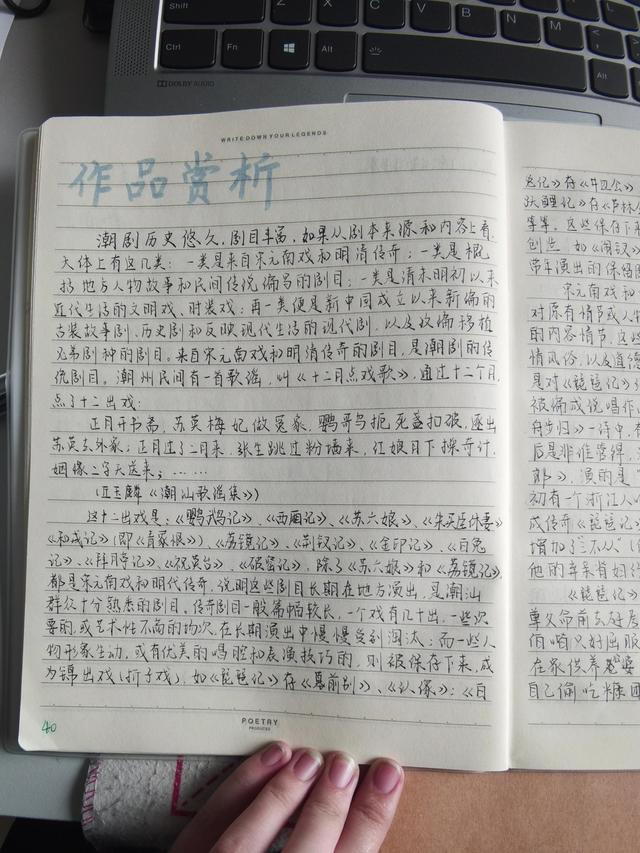 Shift
X
C
V
B
N
M
Ctrl
Fn
Alt
Alt
DOLBY AUDIO
WRITE DOWN YOUR LEGENDS
作品赏析
潮剧历史悠久,剧目丰富,如果从剧本来源和内容上看,
大体上有这几类:一类是来自宋元南戏和明清传奇;一类是根
据地方人物故事和民间传说编写的剧目;一类是清末明初以来
近代生活的文明戏、时装戏;再一类便是新中国成立以来新编的
古装故事剧、历史剧和反映现代生活的现代剧,以及改编移植
兄弟剧种的剧目。来自宋元南戏和明清传奇的剧目,是潮剧的传
统剧目。潮州民间有一首歌谣,叫《十二月点戏歌》,通过十二个月,
点了十二出戏:
正月开书斋,苏英梅妃做冤家,鹦哥鸟扼死盏扣破,逐出
苏英去外家;正月过了二月来,张生跳过粉墙来,红娘月下探奇计,
姻缘二字天送来;……
(丘玉麟《潮汕歌谣集》)
这十二出戏是:《鹦鹉记》、《西厢记》、《苏六娘》、《朱买臣休妻》
《和戎记》(即《青冢恨》)、《荔镜记》、《荆钗记》、《金印记》、《白兔
记》、《拜月亭记》、《祝英台》、《破窑记》,除了《苏六娘》和《荔镜记》,
都是宋元南戏和明代传奇,说明这些剧目长期在地方演出,是潮汕
群众十分熟悉的剧目。传奇剧目一般篇幅较长,一个戏有几十出,一些次
要的,或艺术性不高的场次,在长期演出中慢慢受到淘汰;而一些人
物形象生动,或有优美的唱腔和表演技巧的,则被保存下来,成
为锦出戏(折子戏),如《琵琶记》存《真前别》、《认像》;《白
POETRY
40
兔记》存《井边会》
跃鲤记》存《芦林
等等。这些保存下来
创造,如《闹钗》
宋元南戏和
对原有情节或人
的内容情节,这
情风俗,以及道德
是对《琵琶记》
被编成说唱作
舟步归》一诗中,有
后是非谁管得,
郎》,演的是
初有一个浙江人
成传奇《琵琶记》
增加了"三不从"
他的辛苦
《琵琶记》
尊父命前去
伯喈只好屈服
在家供养老婆
自己偷吃糠